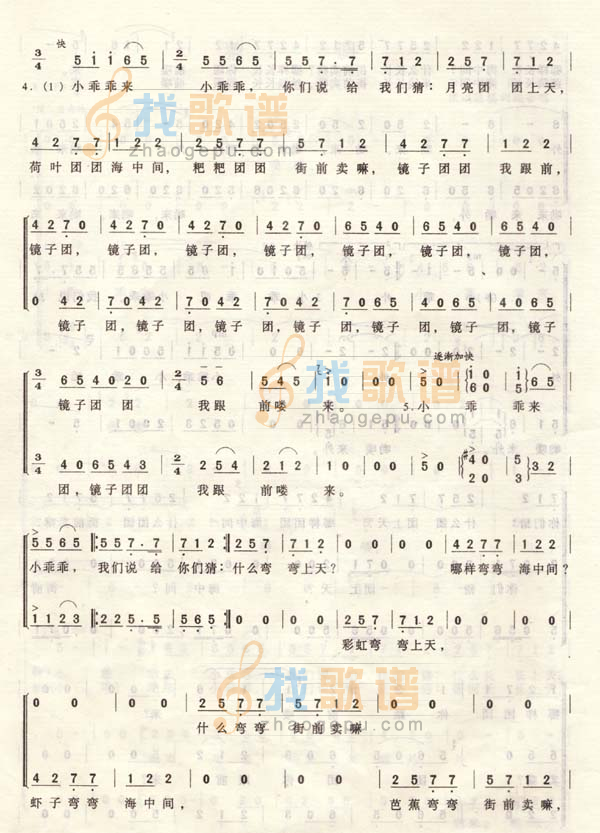 快
3/4 5 1 1 6 5 | 2/4 5 5 6 5 | 5 5 7· 7 | 7 1 2 | 2 5 7 | 7 1 2
4.(1)小乖乖来 小乖乖，你们说给 我们猜：月亮团 团上天，
4 2 7 7 | 1 2 2 | 2 5 7 7 | 5 7 1 2 | 4 2 7 7 | 1 2 2
荷叶团团海中间，粑粑团团 街前卖嘛，镜子团团 我跟前，
4 2 7 0 | 4 2 7 0 | 4 2 7 0 | 4 2 7 0 | 6 5 4 0 | 6 5 4 0 | 6 5 4 0
镜子团，镜子团，镜子团，镜子团，镜子团，镜子团，镜子团，
0 4 2 | 7 0 4 2 | 7 0 4 2 | 7 0 4 2 | 7 0 6 5 | 4 0 6 5 | 4 0 6 5
镜子团，镜子团，镜子团，镜子团，镜子团，镜子团，镜子
逐渐加快
3/4 6 5 4 0 2 0 | 2/4 5 6 | 5 4 5 | 1 0 | 0 0 | 5 0 | 1 1 6 0 0 5 | 6 5
镜子团团 我跟 前喽来。 5.小 乖 乖来
3/4 4 0 6 5 4 3 | 2/4 2 5 4 | 2 1 2 | 1 0 | 0 0 | 5 0 | 4 0 5 2 0 3 | 3 2
团，镜子团团 我跟 前喽 来。
5 5 6 5 | 5 5 7· 7 | 7 1 2 | 2 5 7 | 7 1 2 | 0 0 | 0 0 | 4 2 7 7 | 1 2 2
小乖乖，我们说给 你们猜：什么弯 弯上天？ 哪样弯弯 海中间？
1 1 2 3 | 2 2 5· 5 | 5 6 5 | 0 0 | 0 0 | 2 5 7 | 7 1 2 | 0 0 | 0 0
彩虹弯 弯上天，
0 0 | 0 0 | 2 5 7 7 | 5 7 1 2 | 0 0 | 0 0
什么弯弯 街前卖嘛
4 2 7 7 | 1 2 2 | 0 0 | 0 0 | 2 5 7 7 | 5 7 1 2
虾子弯弯 海中间， 芭蕉弯弯 街前卖嘛，
找歌谱
zhaogepu.com
找歌谱
zhaogepu.com
找歌谱
zhaogepu.com